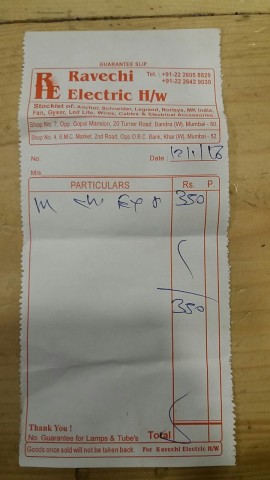 GUARANTEE SLIP
RHE Ravechi Electric H/w
Tel. : +91-22 2605 8829
+91-22 2642 9030
Stockist of: Anchor, Schneider, Legrand, Norisys, MK India,
Fan, Gyser, Led Life, Wires, Cables & Electrical Accessories
Shop No. 7, Opp. Gopal Mansion, 20 Turner Road, Bandra (W), Mumbai - 50.
Shop No. 4, B.M.C. Market, 2nd Road, Opp. O.B.C. Bank, Khar (W), Mumbai - 52
No. Date : 12/1/16
M/s.
PARTICULARS Rs. P.
350
350
Thank You !
No. Guarantee for Lamps & Tube's Total
Goods once sold will not be taken back For Ravechi Electric H/W